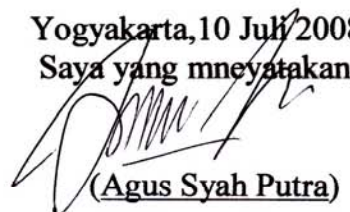 Yogyakarta,10 Juli 2008
Saya yang mneyatakan
(Agus Syah Putra)